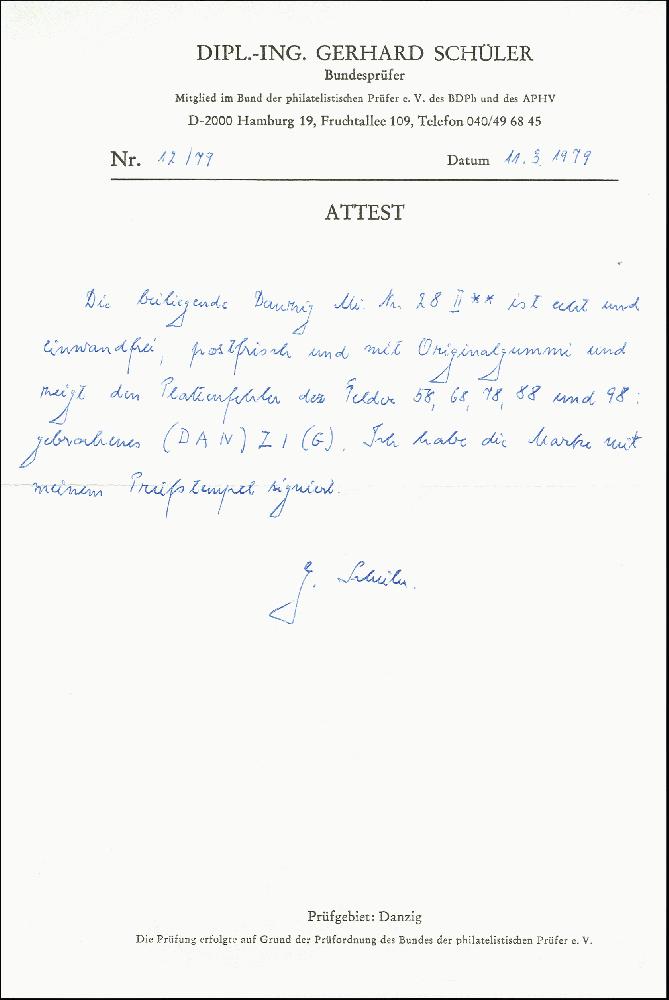 DIPL.-ING. GERHARD SCHÜLER
Bundesprüfer
Mitglied im Bund der philatelistischen Prüfer e. V. des BDPh und des APHV
D-2000 Hamburg 19, Fruchtallee 109, Telefon 040/49 68 45
Nr. 12/79 Datum 11. 3. 1979
ATTEST
Die beiliegende Danzig Mi. Nr. 28 II ** ist echt und
einwandfrei, postfrisch und mit Originalgummi und
zeigt den Plattenfehler der Felder 58, 68, 78, 88 und 98:
gebrochenes (DAN) Z I (G). Ich habe die Marke mit
meinem Prüfstempel signiert.
G. Schüler.
Prüfgebiet: Danzig
Die Prüfung erfolgte auf Grund der Prüfordnung des Bundes der philatelistischen Prüfer e. V.